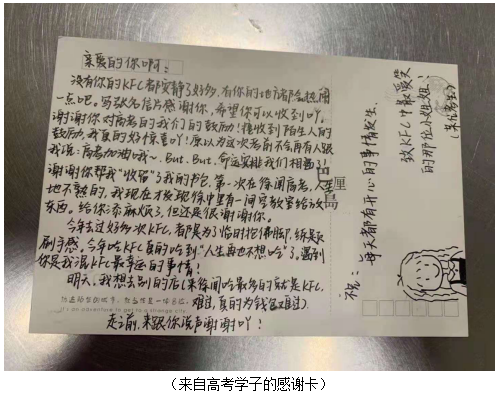 亲爱的你啊：
没有你的KFC都安静了好多，有你的地方都会热闹
一点吧。写张名信片感谢你，希望你可以收到吖。
谢谢你对高考的我们的鼓励！接收到陌生人的
鼓励，我真的好惊喜吖！原以为这次考前不会再有人跟
我说：高考加油哦～. But. But. 命运安排我们相遇了！
谢谢你帮我“收留”了我的书包，第一次在徐闻高考，人生
地不熟的，我现在才发现徐中里有一间教室给放
东西。给你添麻烦了，但还是很谢谢你。
今年去过好多次KFC都是为了临时抱佛脚，
刷手感。今年吃KFC真的吃到“人生再也不想吃”了，遇到
你是我涡KFC最幸运的事情！
明天，我想去别的店（来徐闻吃最多的就是KFC，
难过，真的为钱包难过）
It's an adventure to get to a strange city
走之前，来跟你说声谢谢吖！
巴厘岛
祝：
每天都有开心的事情发生.
致KFC中最爱笑
的那位小姐姐.
（来自高考学子的感谢卡）